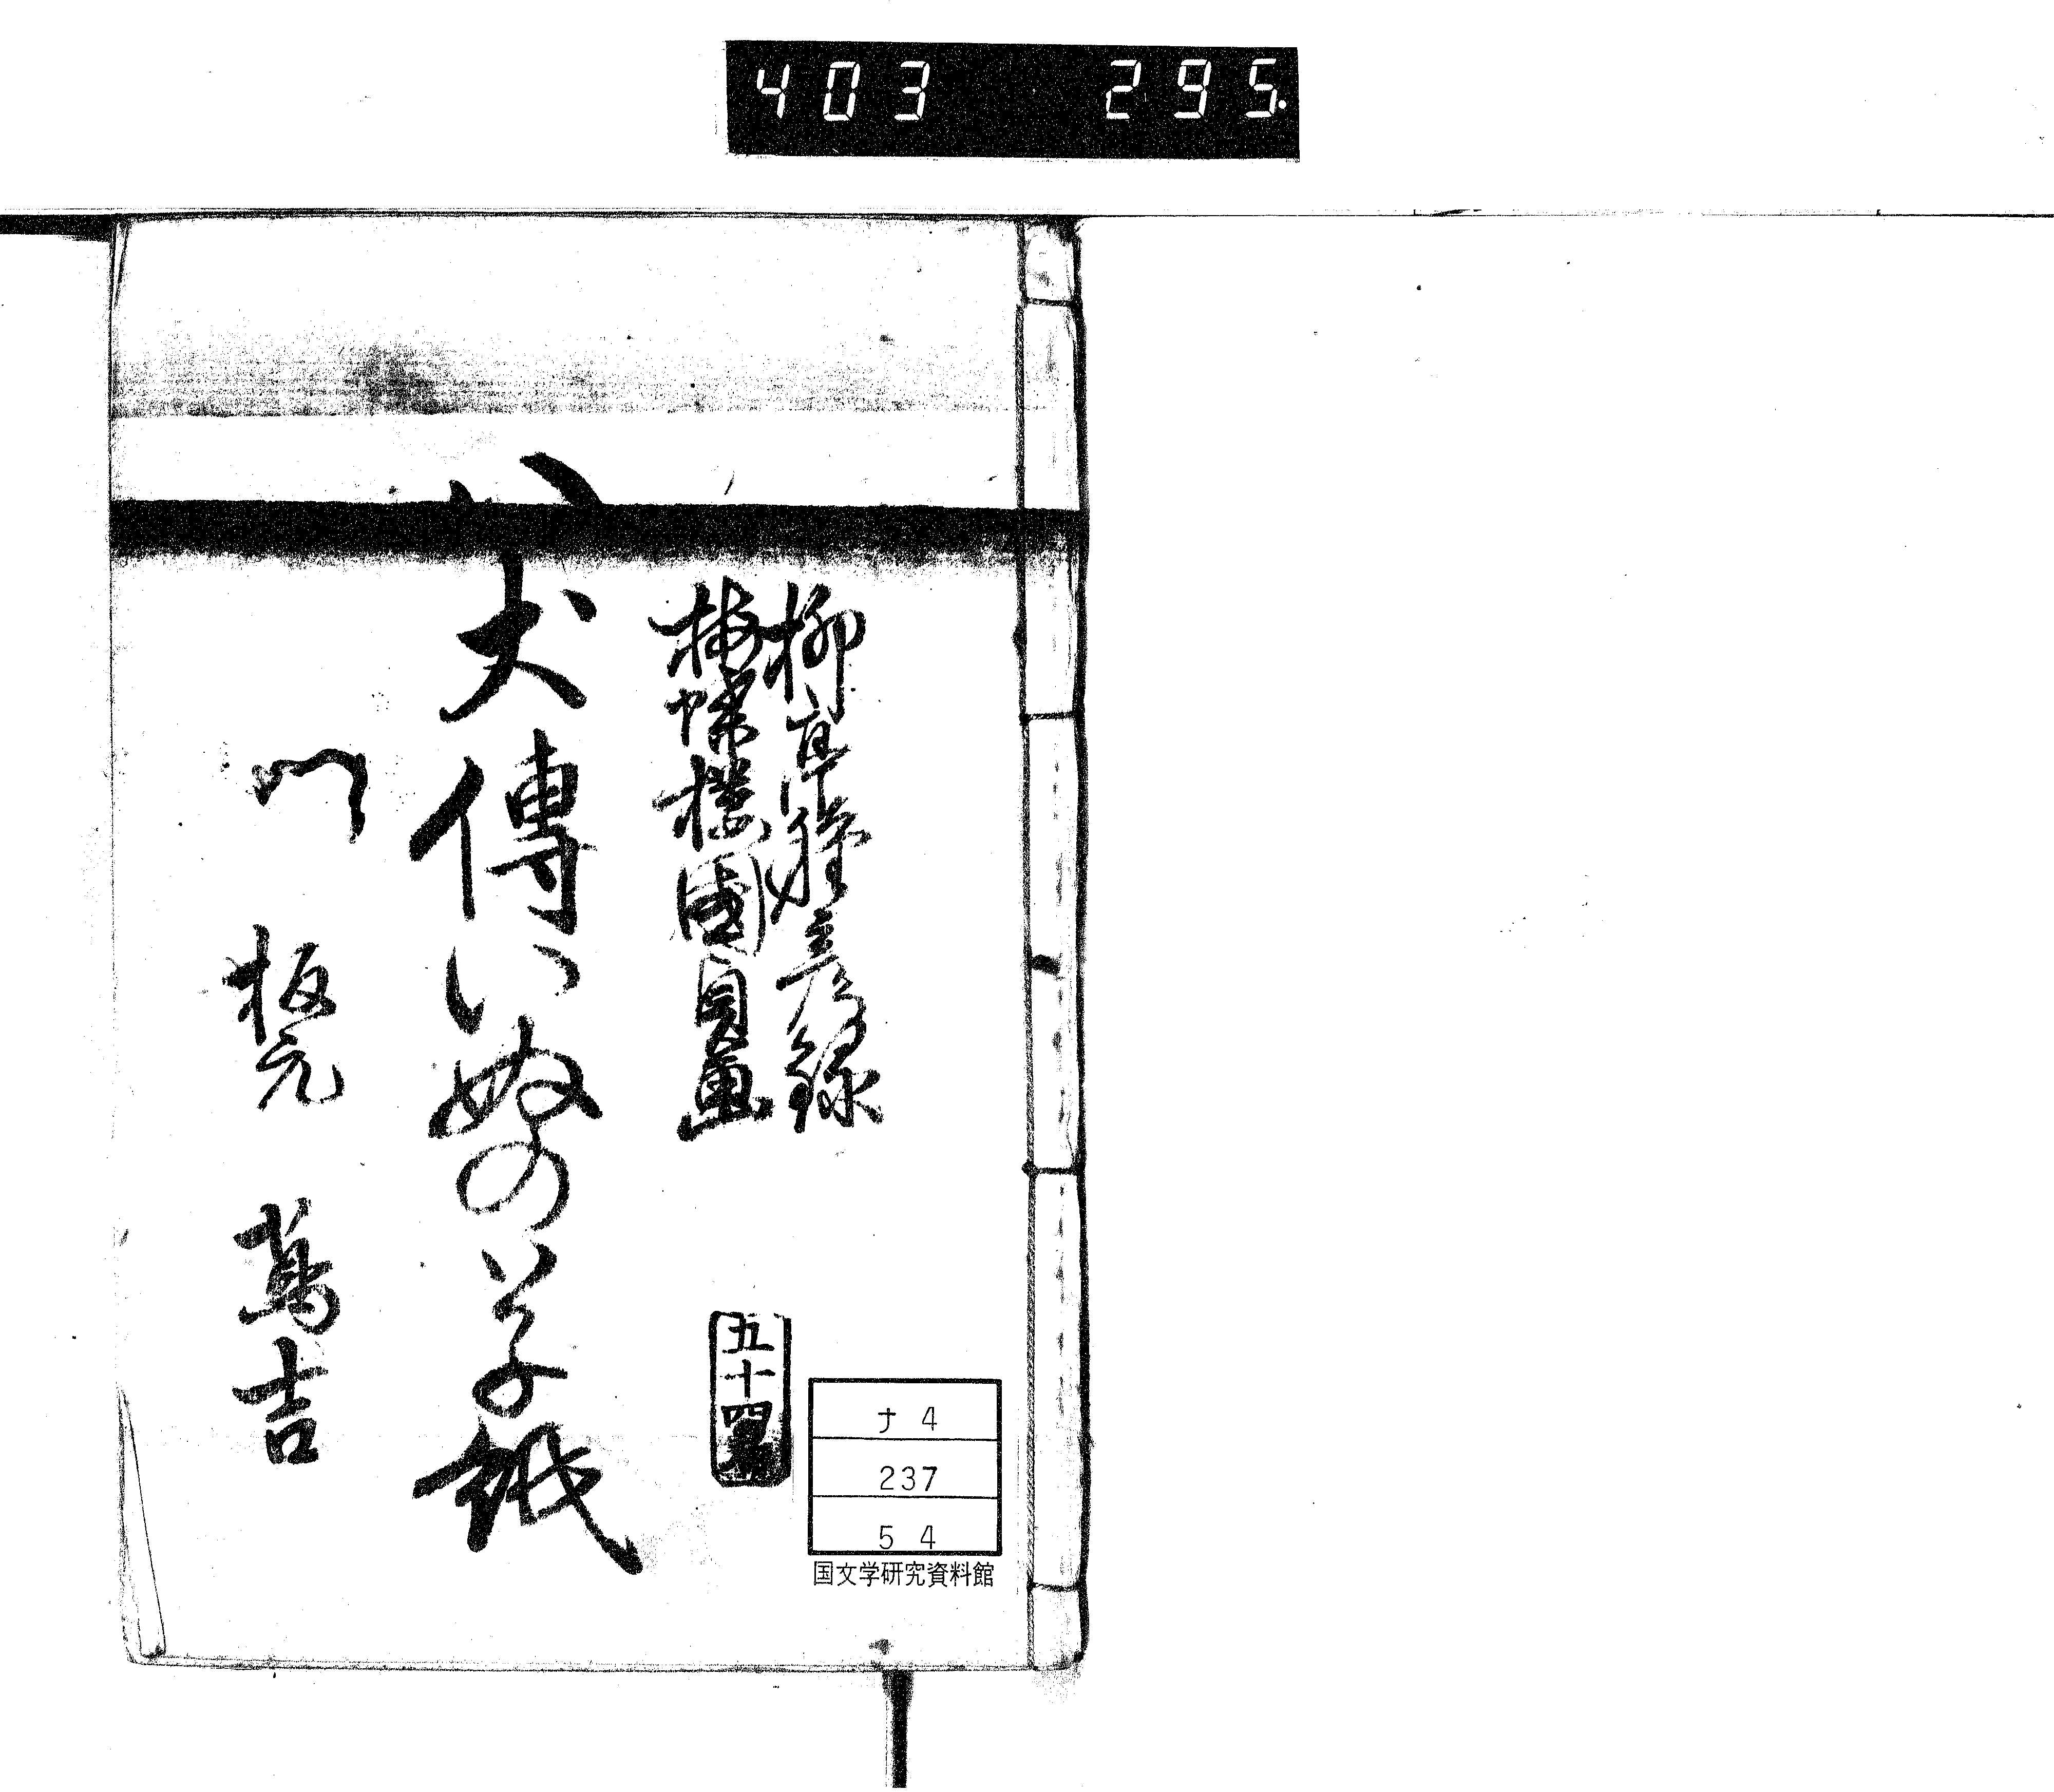 403 295
柳亭種彦録
梅蝶樓國貞画
五十四編
八犬傳いぬの草紙
板元 蔦吉
ナ 4
237
5 4
国文学研究資料館